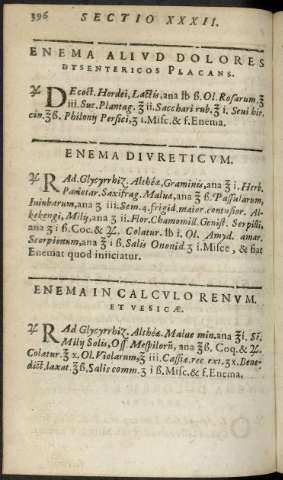 396 SECTIO XXXII.
ENEMA ALIVD DOLORES
DYSENTERICOS PLACANS.
♃ DEcoct. Hordei, Lactis, ana lb ß. Ol. Rosarum ʒ
iii. Suc. Plantag. ℥ ii. Sacchari rub. ℥ i. Seui hir
cin. ℥ß. Philonij Persici, ʒ i. Misc. & f. Enema.
ENEMA DIVRETICVM.
♃ RAd. Glycyrrhiz. Altheæ, Graminis, ana ℥ i. Herb.
Parietar. Saxifrag. Malua, ana ℥ ß. Passularum,
Iuiubarum, ana ℥ iii. Sem. 4. frigid. maior. contusior. Al-
kekengi, Milij, ana ʒ ii. Flor. Chamomill. Genist. Serpilli,
ana ʒ i ß. Coc. & ♃. Colatur. lb i. Ol. Amyd. amar.
Scorpionum, ana ℥ i ß. Salis Ononid. ʒ i. Misce, & fiat
Enemat quod iniiciatur.
ENEMA IN CALCVLO RENVM.
ET VESICÆ.
♃ RAd. Glycyrrhiz. Altheæ. Malue min. ana ℥i. Sẽ.
Milij Solis, Oss Mespilorũ, ana ℥ ß. Coq. & ♃.
Colatur. ℥ x. Ol. Violarum, ℥ iii. Cassiæ rec ext. ʒx. Bene-
dict. laxat. ℥ß. Salis comm. ʒ i ß. Misc. & f. Enema.